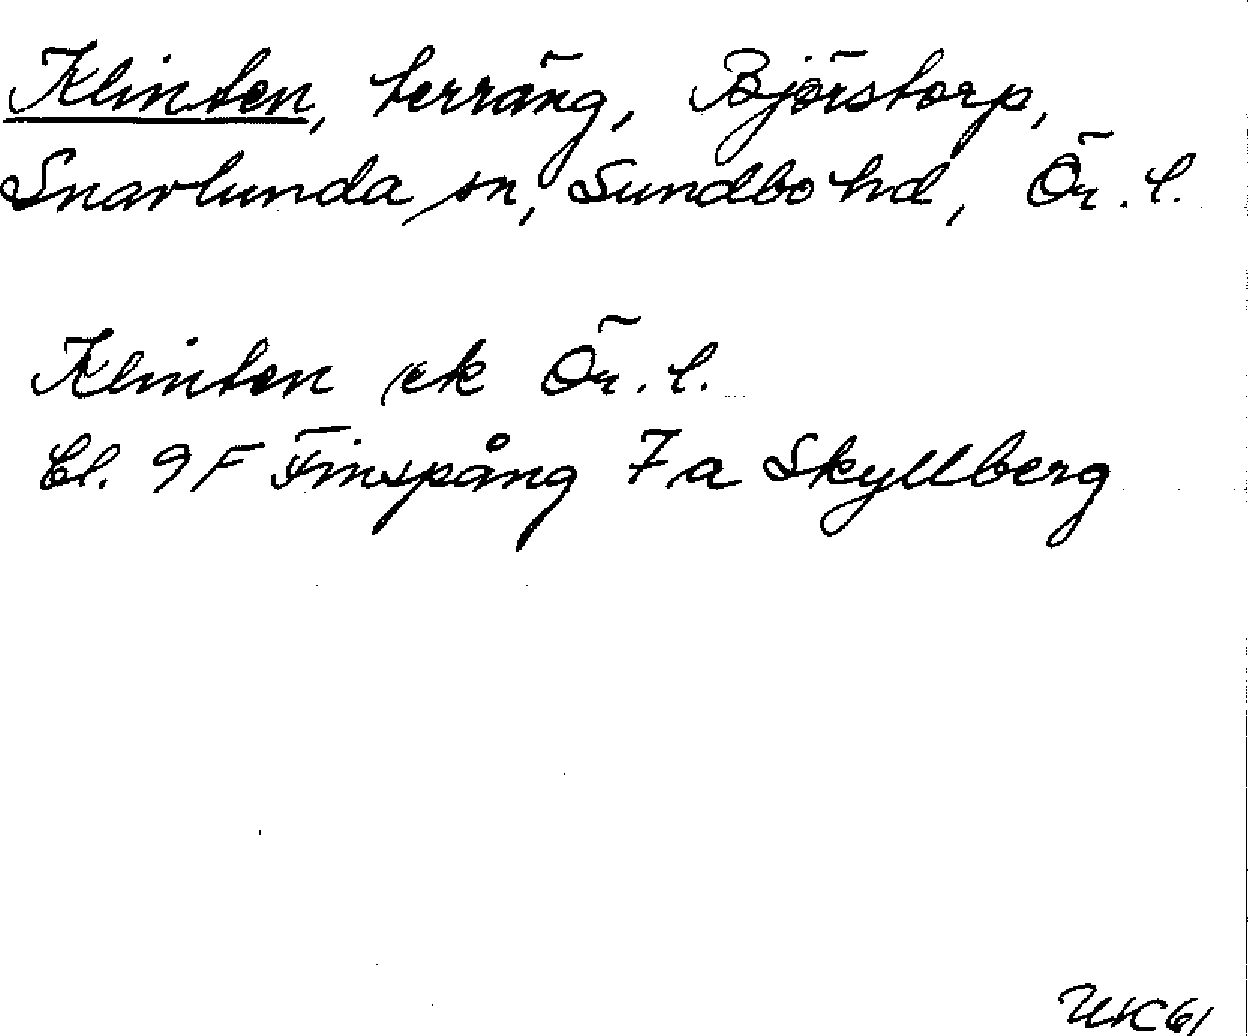 Klinten, terräng, Björstorp,
Snavlunda sn, Sundbo hd, Ör. l.
Klinten ek Ör. l.
bl. 9 F Finspång 7 a Skyllberg
UK 61